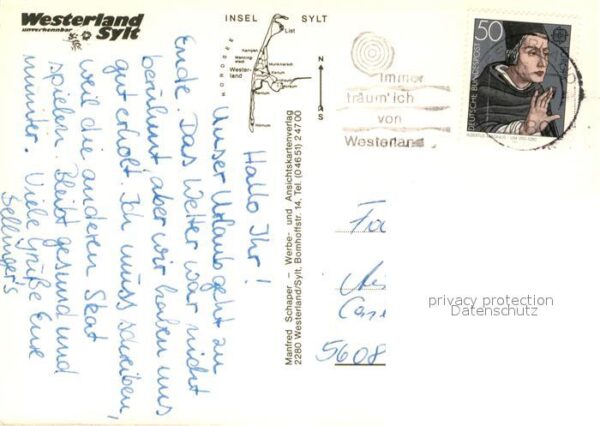 Westerland
unverkennbar
Sylt
INSEL SYLT
NORDSEE
List
Kampen
Wester-
land
Hörnum
N
S
Immer
träum' ich
von
Westerland
50
DEUTSCHE BUNDESPOST
Hallo Ihr!
Unser Urlaub geht zu
Ende. Das Wetter war nicht
berühmt, aber wir haben uns
gut erholt. Ich muss schreiben,
weil die anderen Skat
spielen. Bleibt gesund und
munter. Viele Grüße Eure
Sellinger's
Manfred Schaper – Werbe- und Ansichtskartenverlag
2280 Westerland/Sylt, Bomhoffstr. 14, Tel. (04651) 24700
Fa
5608
privacy protection
Datenschutz